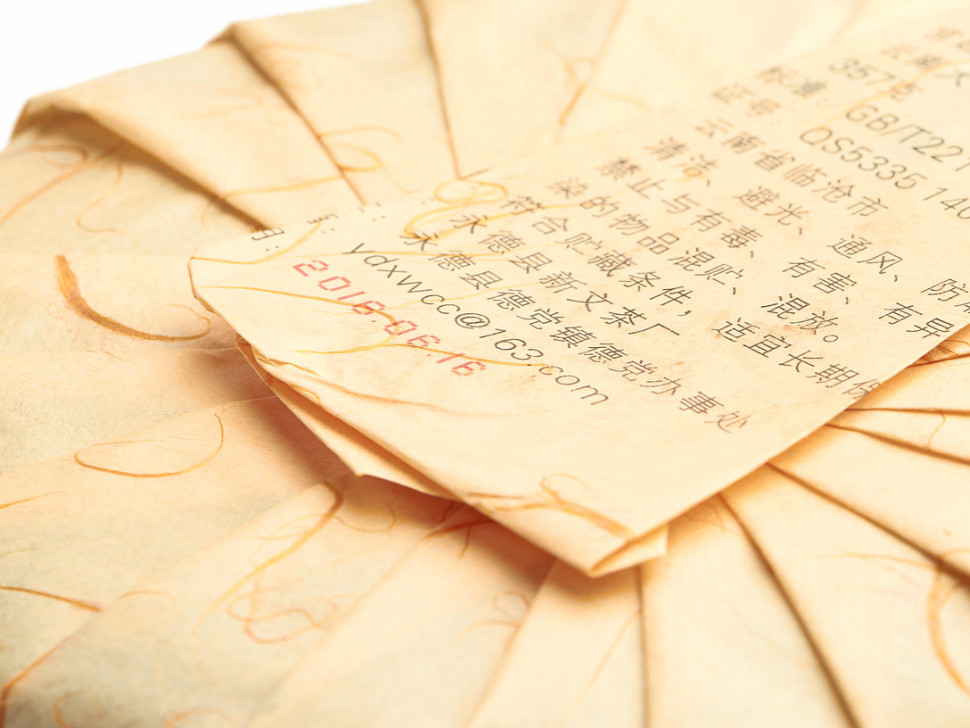 357克
标准: GB/T221
证号: QS5335 140
云南省临沧市
清洁、避光、通风、防
禁止与有毒、有害、有异
染的物品混贮、混放。
符合贮藏条件,适宜长期保
永德县新文茶厂
永德县德党镇德党办事处
ydxwcc@163.com
2018.06.16